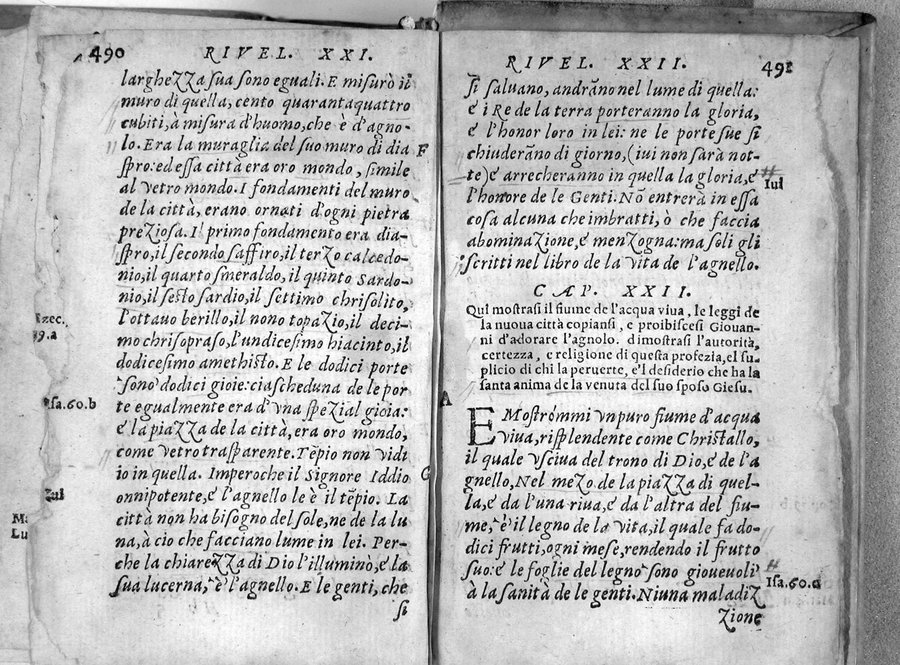 490 RIVEL. XXI.
larghezza sua sono eguali. E misurò il
muro di quella, cento quarantaquattro
cubiti, à misura d'huomo, che è d'agno-
lo. Era la muraglia del suo muro di dia
spro: ed essa città era oro mondo, simile
al vetro mondo. I fondamenti del muro
de la città, erano ornati d'ogni pietra
preziosa. Il primo fondamento era dia-
spro, il secondo saffiro, il terzo calcedo-
nio, il quarto smeraldo, il quinto Sardo-
nio, il sesto sardio, il settimo chrisolito,
l'ottauo berillo, il nono topazio, il deci-
mo chrisopraso, l'undicesimo hiacinto, il
dodicesimo amethisto. E le dodici porte
sono dodici gioie: ciascheduna de le por
te egualmente era d'vna spezial gioia:
é la piazza de la città, era oro mondo,
come vetro trasparente. Tẽpio non vidi
io in quella. Imperoche il Signore Iddio
onnipotente, é l'agnello le è il tẽpio. La
città non ha bisogno del sole, ne de la lu
na, à cio che facciano lume in lei. Per-
che la chiarezza di Dio l'illuminò, é la
sua lucerna, è l'agnello. E le genti, che
si
F
G
Ezec.
39.a
Isa.60.b
Iul
Lu
RIVEL. XXII. 491
si saluano, andrãno nel lume di quella:
é i Re de la terra porteranno la gloria,
é l'honor loro in lei: ne le porte sue si
chiuderãno di giorno, (iui non sarà not-
te) é arrecheranno in quella la gloria, é
l'honore de le Genti. Nõ entrerà in essa
cosa alcuna che imbratti, ò che faccia
abominazione, é menzogna: ma soli gli
scritti nel libro de la vita de l'agnello.
CAP. XXII.
Qui mostrasi il fiume de l'acqua viua, le leggi de
la nuoua città copiansi, e proibiscesi Giouan-
ni d'adorare l'agnolo. dimostrasi l'autorità,
certezza, e religione di questa profezia, el su-
plicio di chi la peruerte, e'l desiderio che ha la
santa anima de la venuta del suo sposo Giesu.
E Mostrómmi vn puro fiume d'acqua
viua, risplendente come Christallo,
il quale vsciua del trono di Dio, é de l'a
gnello, Nel mezo de la piazza di quel-
la, é da l'una riua, é da l'altra del fiu-
me, è il legno de la vita, il quale fa do-
dici frutti, ogni mese, rendendo il frutto
suo: é le foglie del legno sono giouevoli
à la sanità de le genti. Niuna maladiz
zione
A
Iul
Isa.60.a